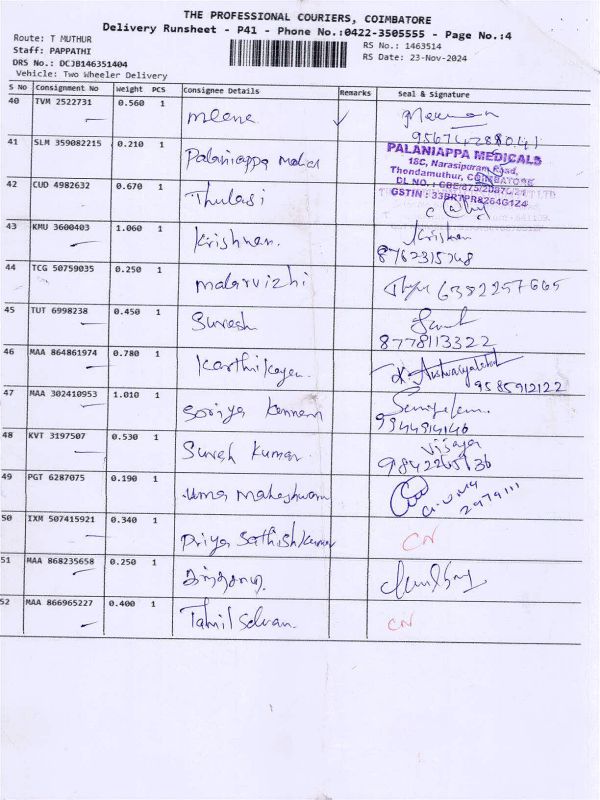 THE PROFESSIONAL COURIERS, COIMBATORE
Delivery Runsheet - P41 - Phone No.:0422-3505555 - Page No.:4
Route: T MUTHUR
RS No.: 1463514
Staff: PAPPATHI
RS Date: 23-Nov-2024
DRS No.: DCJB146351404
Vehicle: Two Wheeler Delivery
S No Consignment No Weight PCS Consignee Details Remarks Seal & Signature
40 TVM 2522731 0.560 1 meena ✓
41 SLM 359082215 0.210 1 Palaniappa
PALANIAPPA MEDICALS
18C, Narasipuram Road,
Thendamuthur, COIMBATORE
GSTIN :
42 CUD 4982632 0.670 1 Thulasi
43 KMU 3600403 1.060 1 Krishnan. Krishnan
8762315748
44 TCG 50759035 0.250 1 malarvizhi 6382257665
45 TUT 6998238 0.450 1 Suresh
8778113322
46 MAA 864861974 0.780 1 Karthikeyan.
9585912122
47 MAA 302410953 1.010 1 Soriya Kannan
9944914146
48 KVT 3197507 0.530 1 Suresh Kumar. Vijaya
49 PGT 6287075 0.190 1 Uma Maheshwari
2979111
50 IXM 507415921 0.340 1 Priya Sathishkumar CN
51 MAA 868235658 0.250 1
52 MAA 866965227 0.400 1 Tamil Selvan. CN